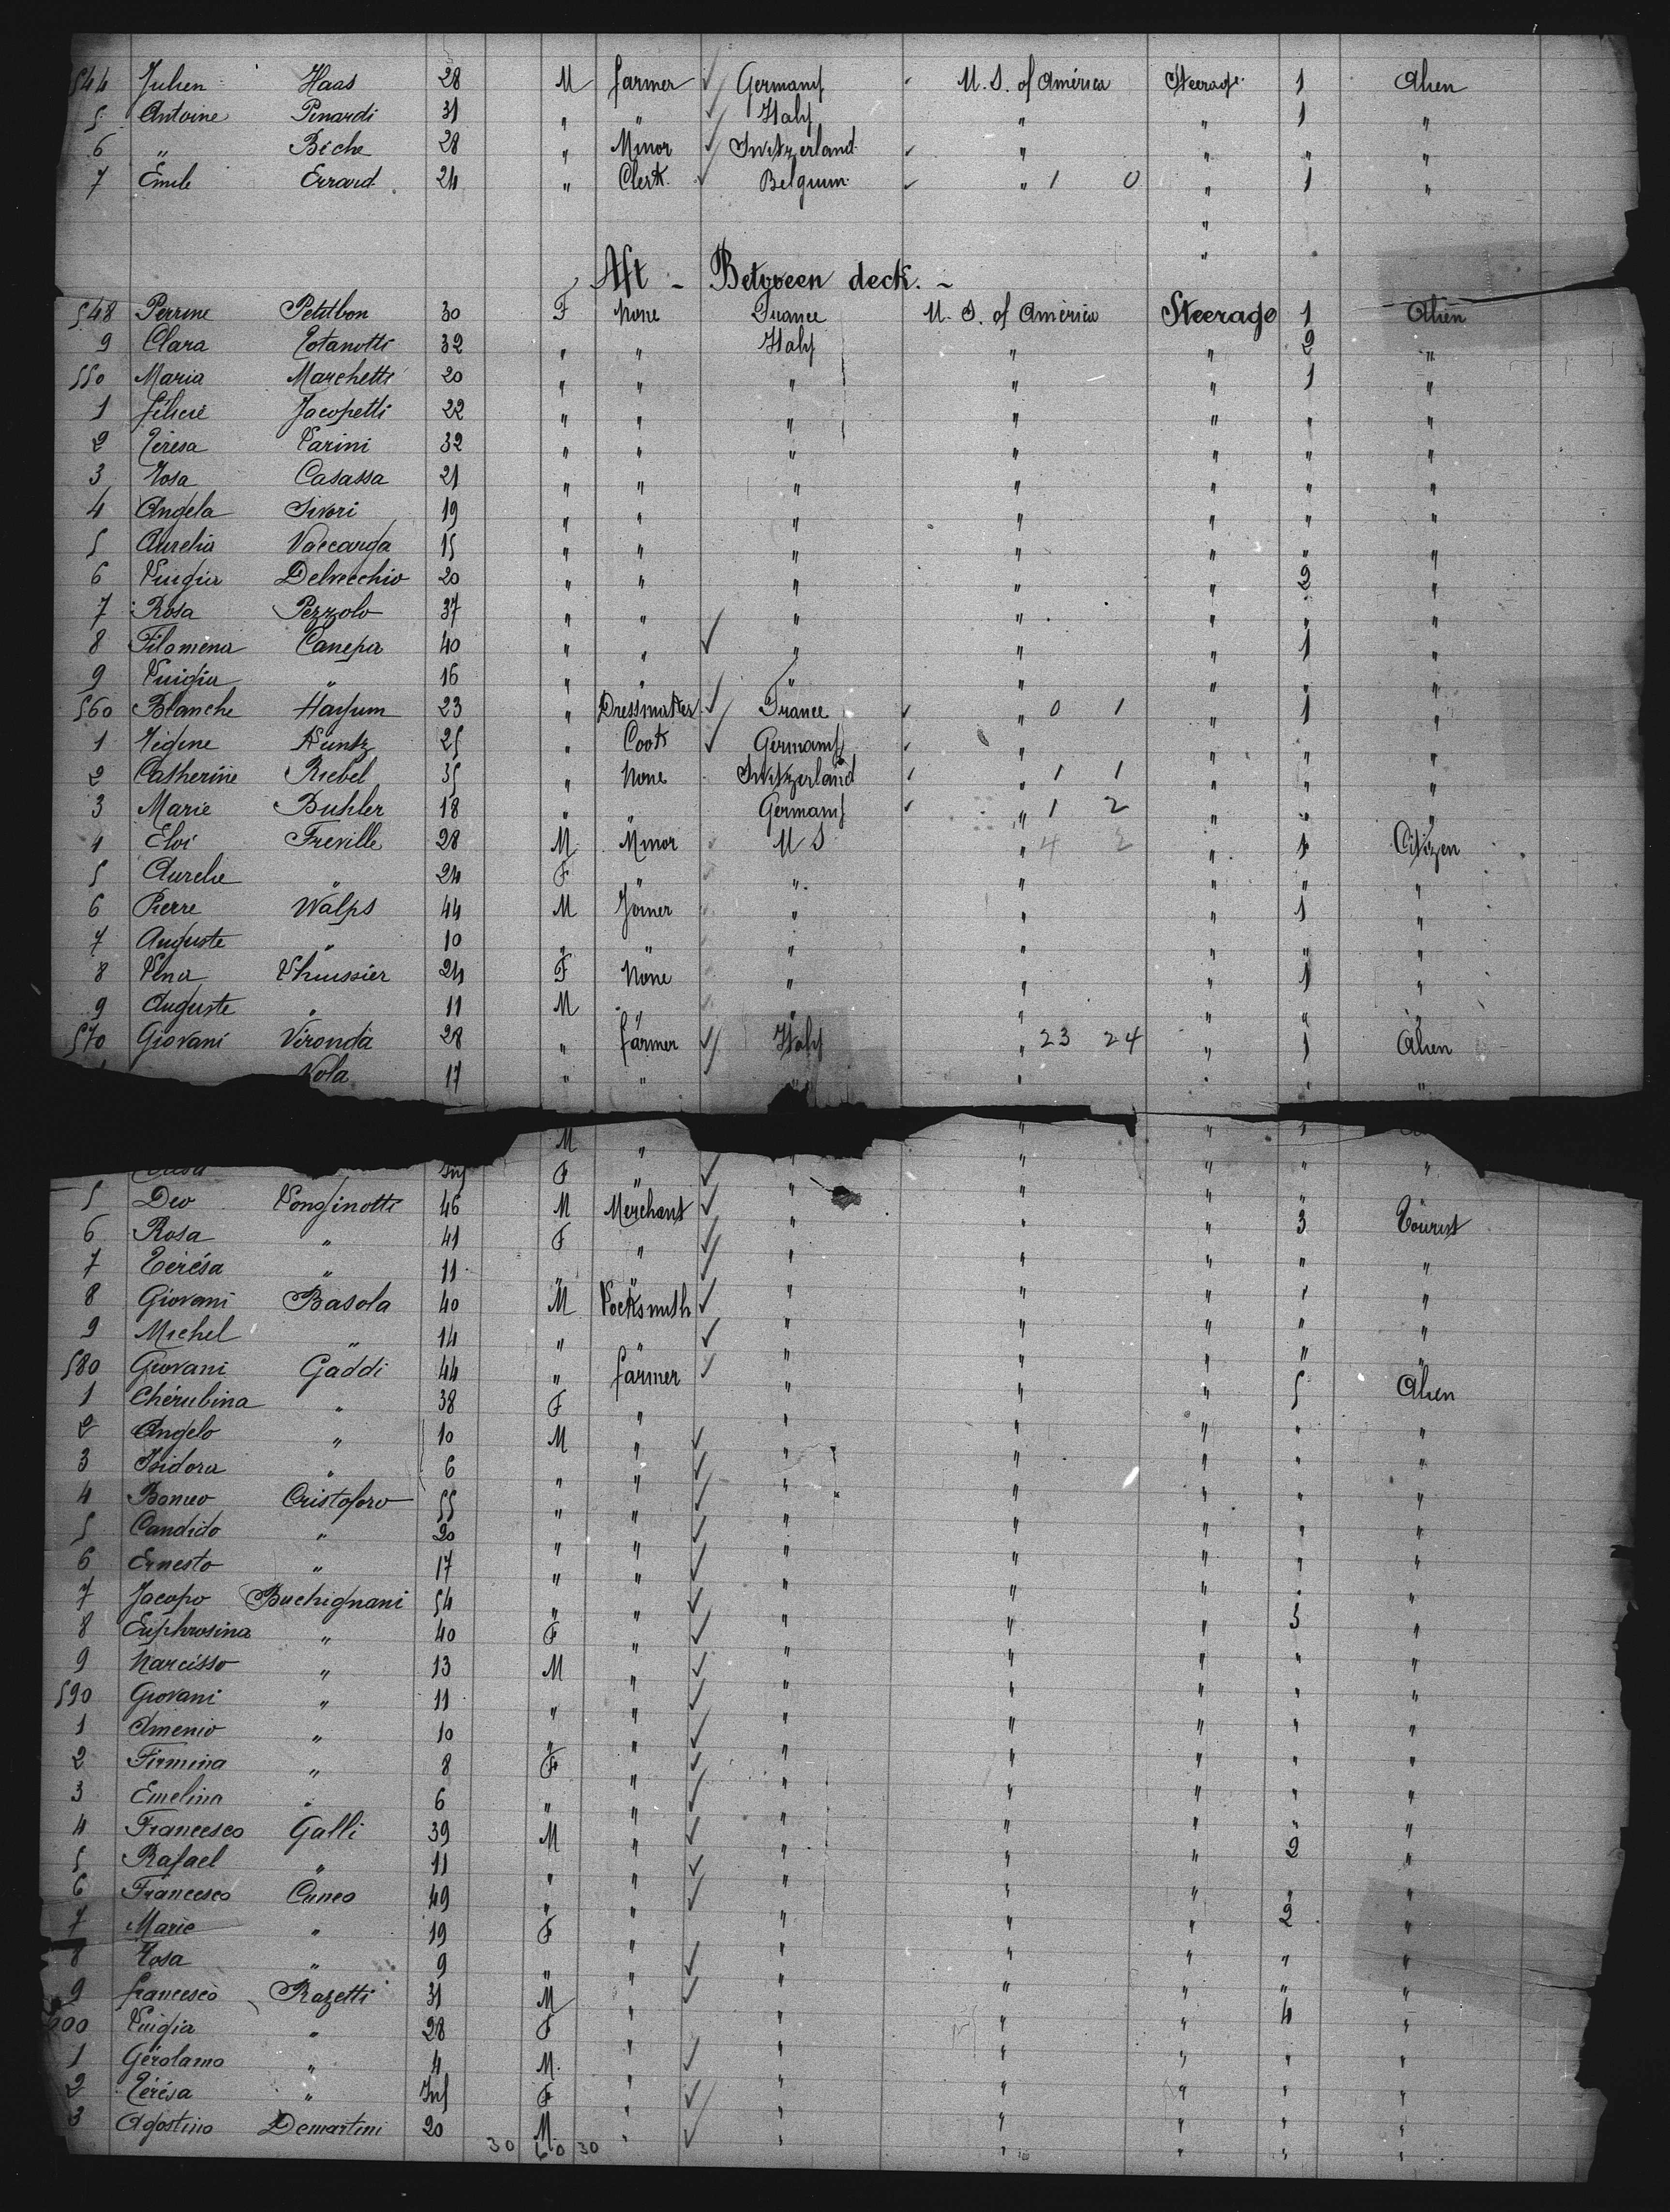 544 Julien Haas 28 M farmer Germany U. S. of América Steerage 1 Alien
5 Antoine Pinardi 31 " " Italy " " 1 "
6 " Biche 28 " Minor Switzerland " " " "
7 Emile Errard 24 " Clerk Belgium " 1 0 " 1 "
"
"
Aft - Between deck. -
548 Perrine Petitbon 30 F None France U. S. of América Steerage 1 Alien
9 Clara 32 " " Italy " " 2 "
550 Maria Marchetti 20 " " " " " 1 "
1 Jacopetti 22 " " " " " " "
2 Térésa Parini 32 " " " " " " "
3 Rosa Casassa 21 " " " " " " "
4 Angela Sivori 19 " " " " " " "
5 Aurelia 15 " " " " " " "
6 Luigia Delvecchio 20 " " " " " 2 "
7 Rosa Pezzolo 37 " " " " " " "
8 Filomena Canepa 40 " " " " " 1 "
9 Luigia " 16 " " " " " " "
560 Blanche Hayum 23 " Dressmaker France " 0 1 " 1 "
1 Kuntz 25 " Cook Germany " " " "
2 Catherine Riebel 35 " None Switzerland " 1 1 " " "
3 Marie Buhler 18 " " Germany " 1 2 " " "
4 Eloi Freville 28 M Minor U S " 4 2 " 1 Citizen
5 Aurelie " 24 F " " " " " "
6 Pierre Walps 44 M Joiner " " " 1 "
7 Auguste " 10 " " " " " " "
8 Lena Lhuissier 24 F None " " " 1 "
9 Auguste " 11 M " " " " " "
570 Giovani Vironda 28 " farmer Italy " 23 24 " 1 Alien
Nola 17 " " " " " " "
M " " " "
Inf F " " " " " "
5 Deo Longinotti 46 M Merchant " " " 3 Tourist
6 Rosa " 41 F " " " " " "
7 Térésa " 11 " " " " " " "
8 Giovani Basola 40 M Locksmith " " " " "
9 Michel " 14 " " " " " " "
580 Giovani Gaddi 44 " farmer " " " 5 Alien
1 Chérubina " 38 F " " " " " "
2 Angelo " 10 M " " " " " "
3 Isidora " 6 " " " " " " "
4 Cristoforo 55 " " " " " " "
5 Candido " 20 " " " " " " "
6 Ernesto " 17 " " " " " " "
7 Jacopo Buchignani 54 " " " " " 5 "
8 Euphrosina " 40 F " " " " " "
9 Narcisso " 13 M " " " " " "
590 Giovani " 11 " " " " " " "
1 Amenio " 10 " " " " " " "
2 Firmina " 8 F " " " " " "
3 Emelina " 6 " " " " " " "
4 Francesco Galli 39 M " " " " 2 "
5 Rafael " 11 " " " " " " "
6 Francesco Cuneo 49 " " " " " 2 "
7 Marie " 19 F " " " " " "
8 Rosa " 9 " " " " " " "
9 francesco Razetti 31 M " " " " 4 "
600 Luigia " 28 F " " " " " "
1 Gérolamo " 4 M " " " " " "
2 Térésa " Inf F " " " " " "
3 Agostino Demartini 20 M " " " " " "
30 60 30